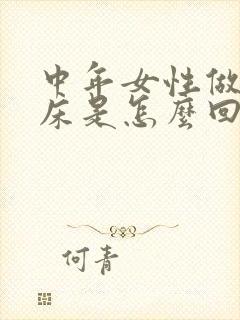 中年女性做
床是怎麼回
何青